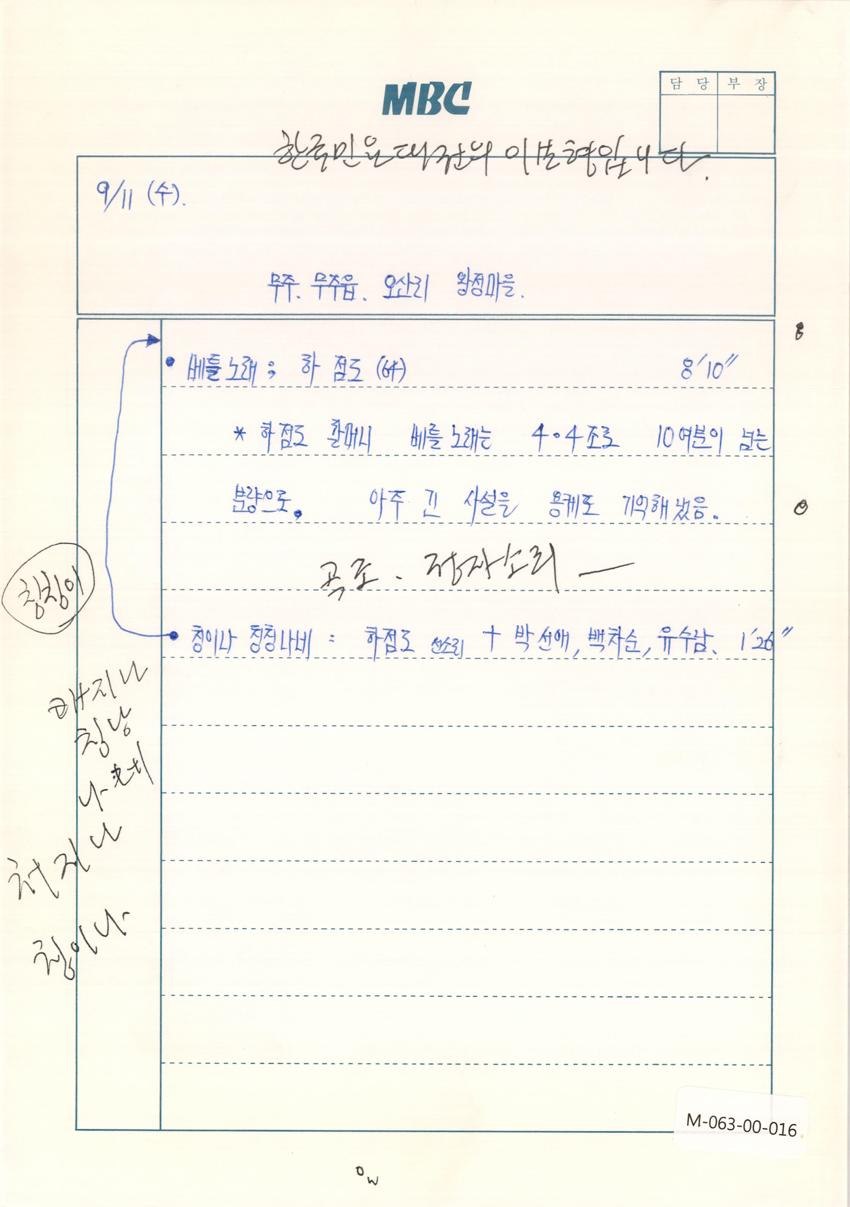 MBC
담 당 부 장
한국민요대전의 이보형입니다.
9/11 (수).
무주. 무주읍. 오산리 왕정마을.
• 베틀노래 ; 하 점도 (64) 8′10″
* 하점도 할머니 베틀노래는 4·4조로 10여분이 넘는
분량으로. 아주 긴 사설을 용케도 기억해냈음.
곡조. 정자소리 —
칭칭이
• 칭이나 칭칭나네 : 하점도 선소리 + 박선애, 백차순, 유수남. 1′26″
칭이나
M-063-00-016